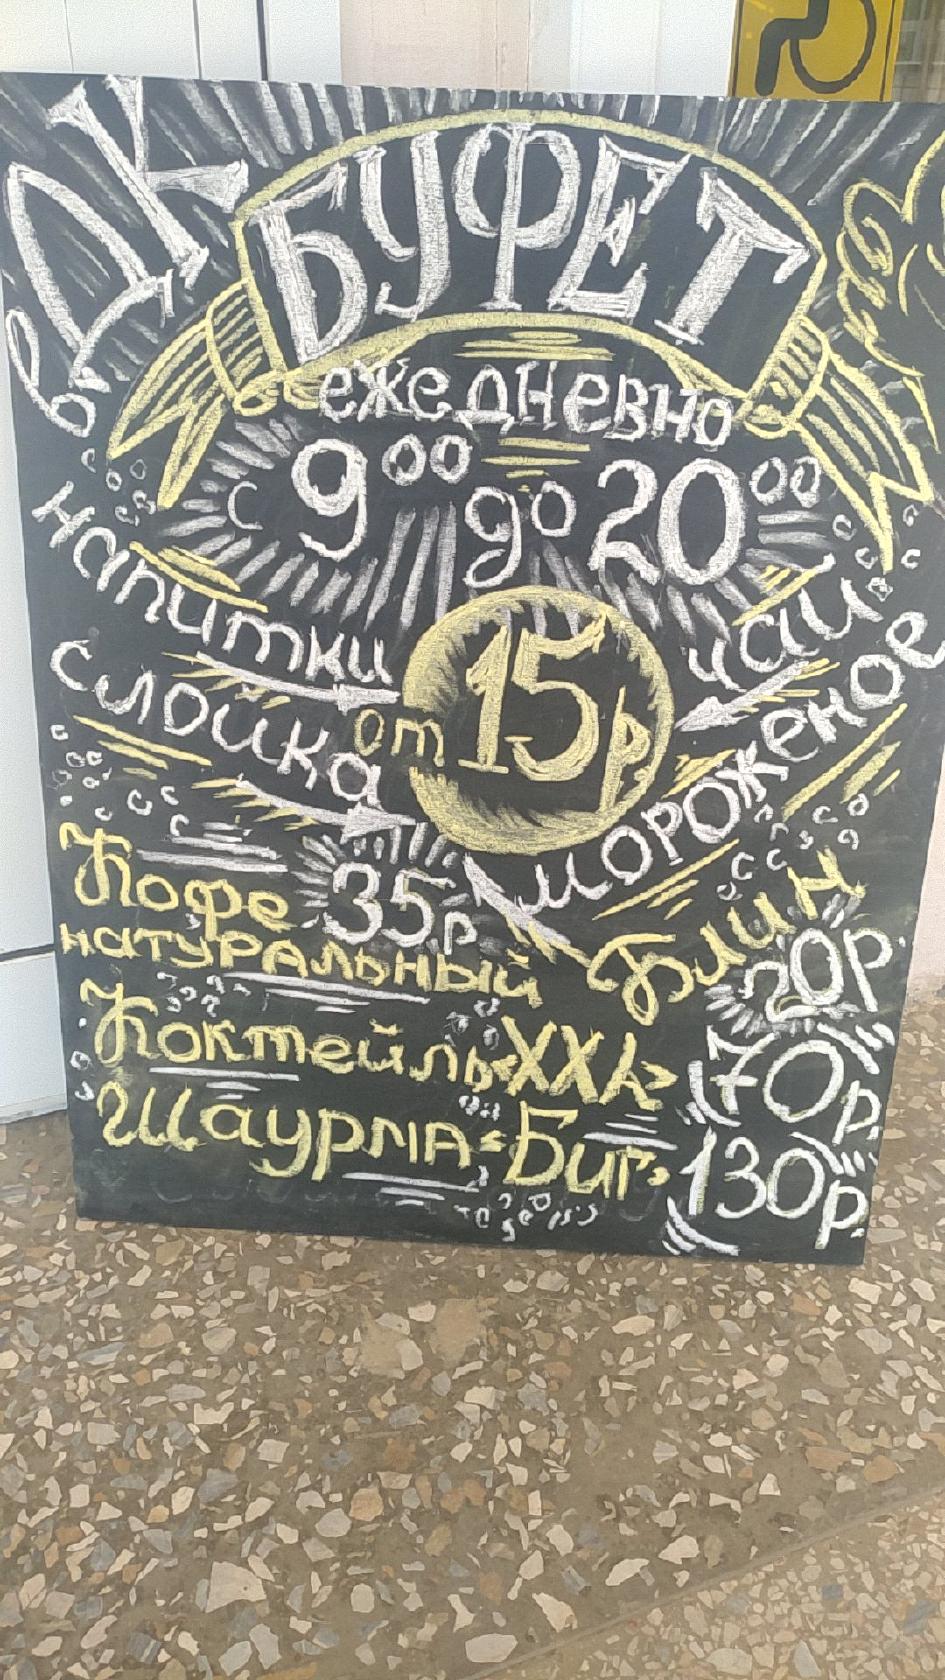 в ДК
БУФЕТ
ежедневно
с 9⁰⁰ до 20⁰⁰
напитки
чай
слойка
от 15р
мороженое
Кофе 35р
натуральный
Блин
20р.
Коктейль «XXL» 70р.
Шаурма «Биг» 130р.